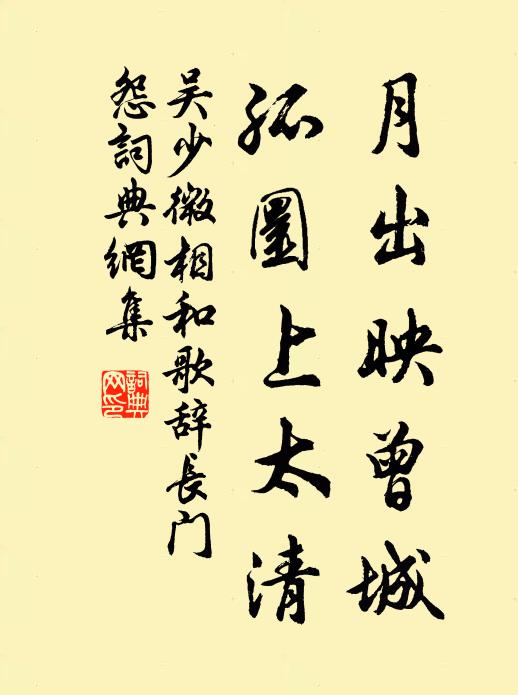 月出映曾城
孤圓上太清
吳少微相和歌辞長门
怨詞典網集
詞典网印